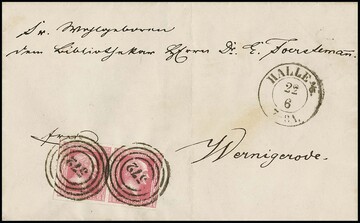 Sr. Wohlgeboren
dem Bibliothekar Herrn Dr. E. Foerstemann.
HALLE
22
6
frei
Wernigerode.
572 572